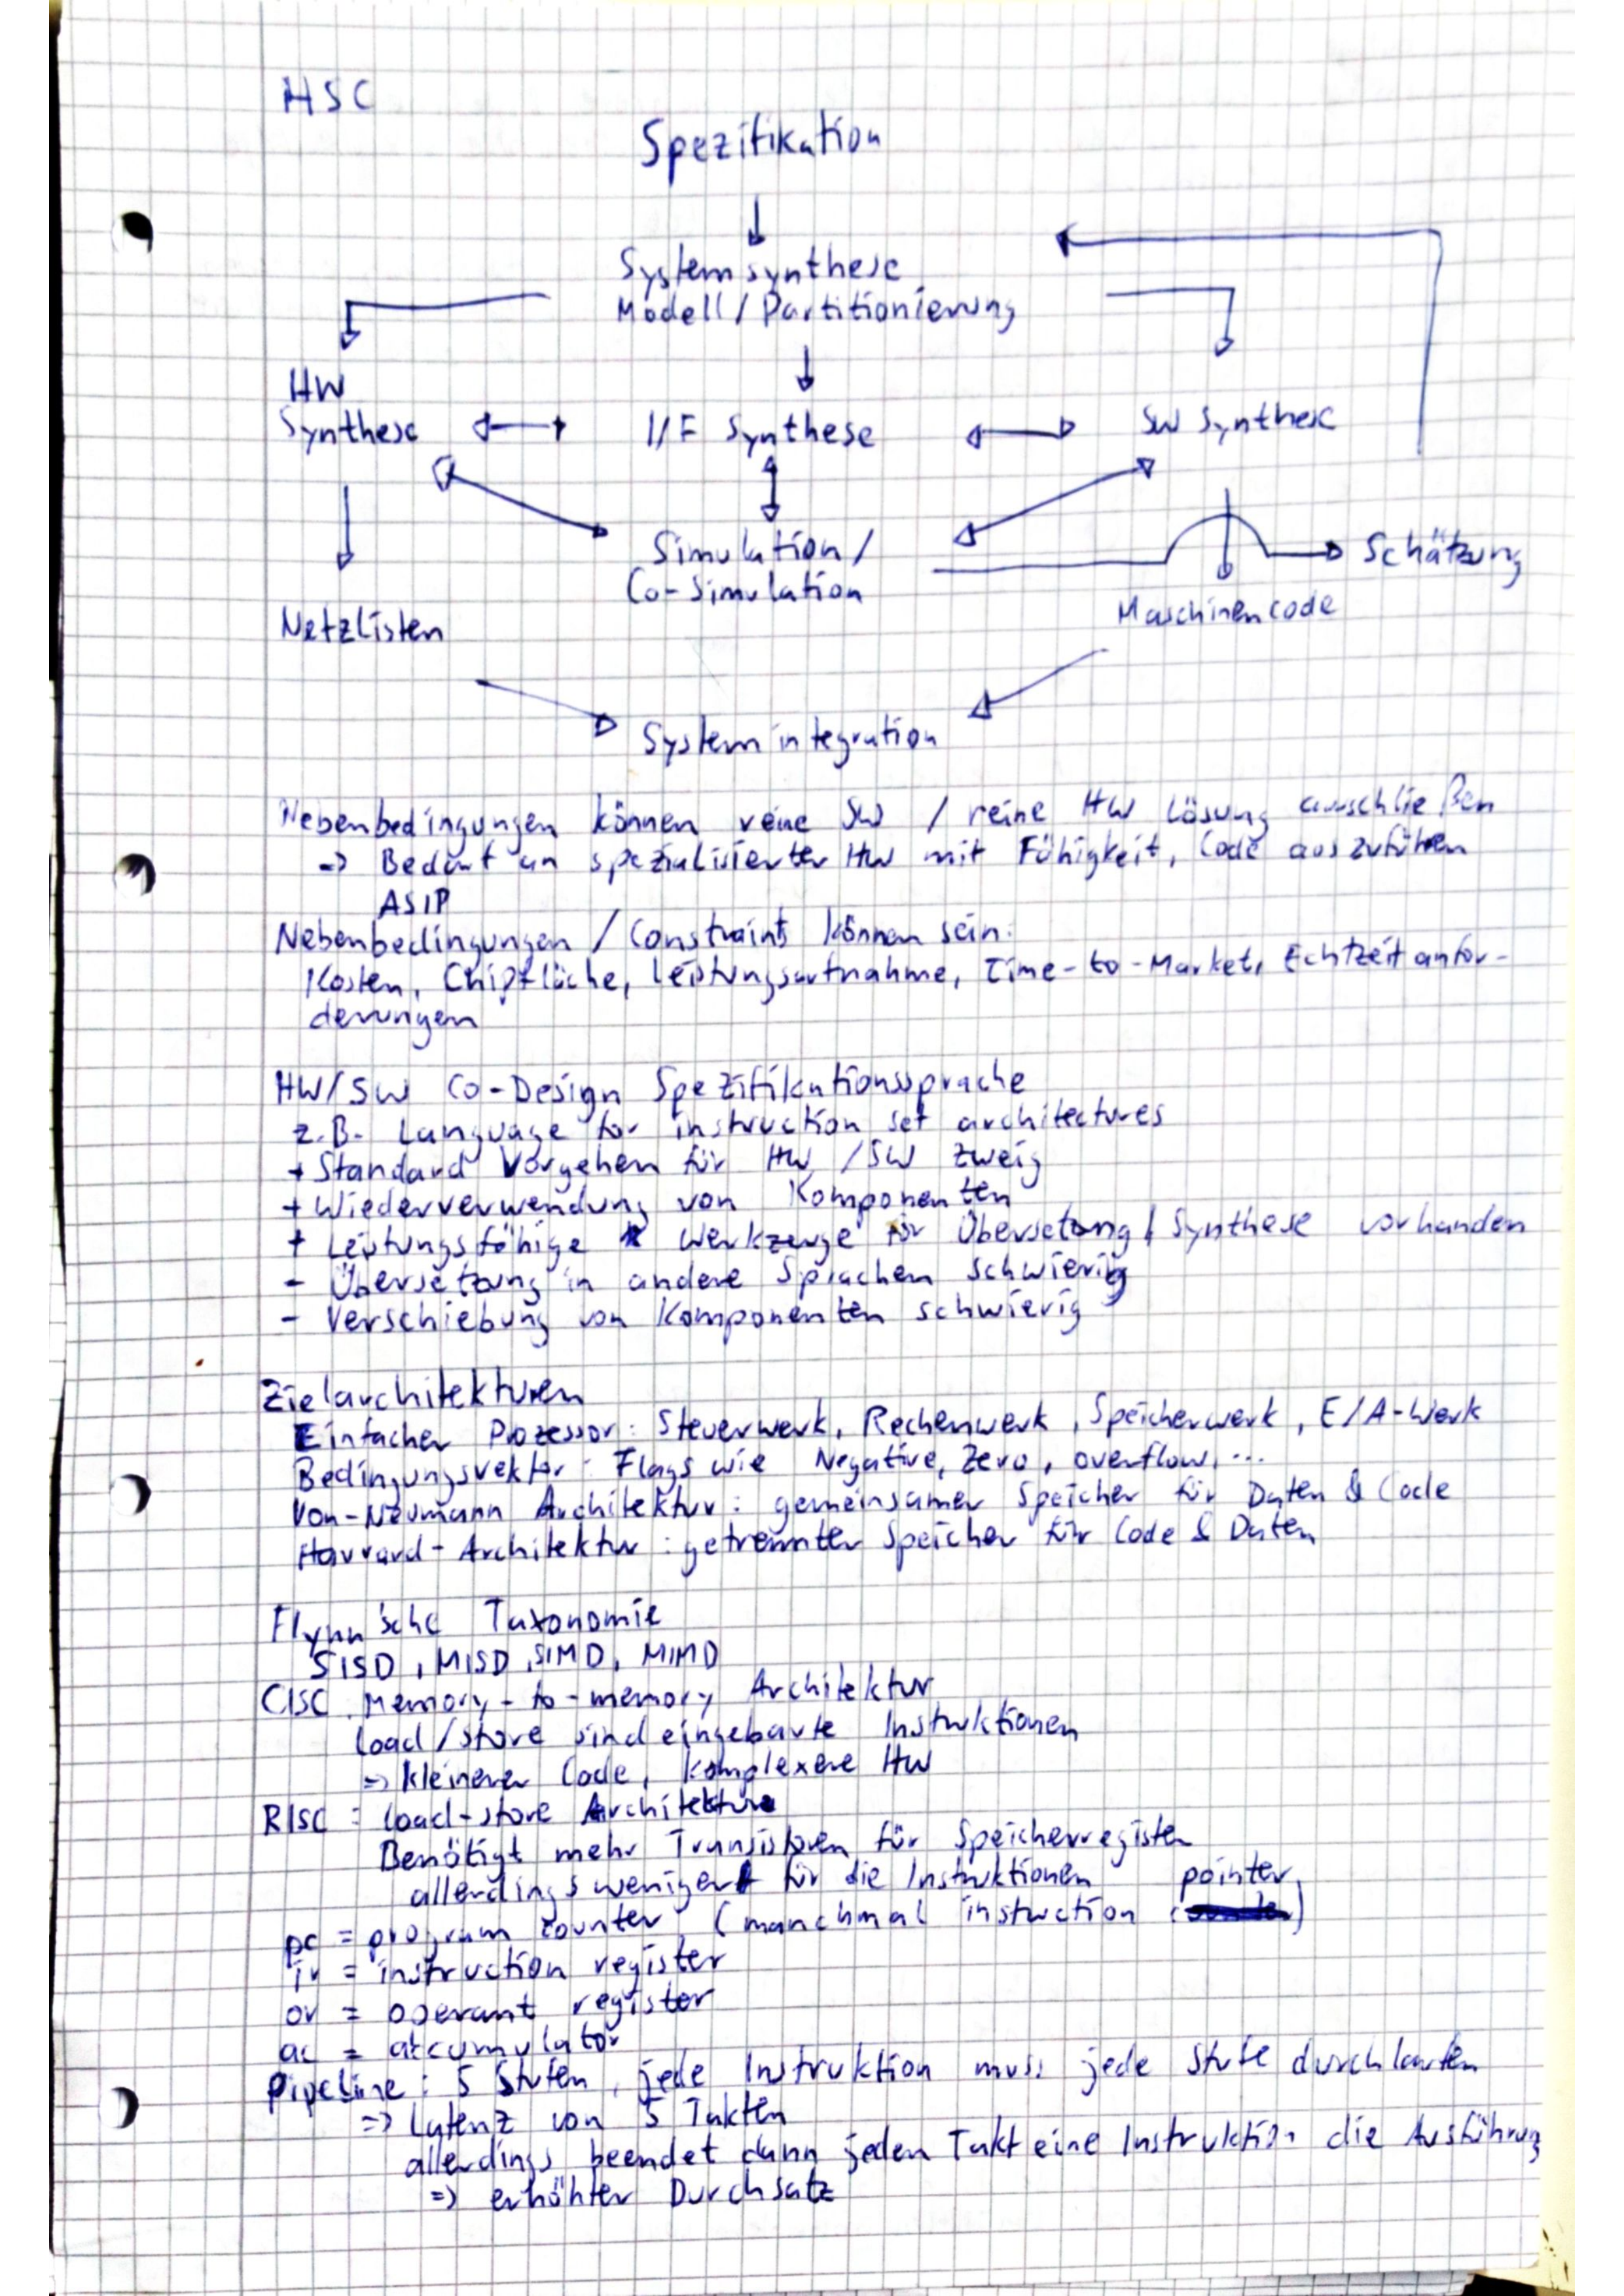 HSC
Spezifikation
Systemsynthese
Modell / Partitionierung
HW
Synthese
I/F Synthese
SW Synthese
Simulation /
Co-Simulation
Schätzung
Netzlisten
Maschinencode
Systemintegration
Nebenbedingungen können reine SW / reine HW Lösung ausschließen
=> Bedarf an spezialisierter HW mit Fähigkeit, Code auszuführen
ASIP
Nebenbedingungen / Constraints können sein:
Kosten, Chipfläche, Leistungsaufnahme, Time-to-Market, Echtzeitanfor-
derungen
HW/SW Co-Design Spezifikationssprache
z.B. Language for instruction set architectures
+ Standard Vorgehen für HW / SW Zweig
+ Wiederverwendung von Komponenten
+ Leistungsfähige Werkzeuge für Übersetung / Synthese vorhanden
- Übersetzung in andere Sprachen schwierig
- Verschiebung von Komponenten schwierig
Zielarchitekturen
Einfacher Prozessor: Steuerwerk, Rechenwerk, Speicherwerk, E/A-Werk
Bedingungsvektor: Flags wie Negative, Zero, overflow, ...
Von-Neumann Architektur: gemeinsamer Speicher für Daten & Code
Harvard-Architektur: getrennter Speicher für Code & Daten
Flynn'sche Taxonomie
SISD, MISD, SIMD, MIMD
CISC: Memory-to-memory Architektur
load/store sind eingebaute Instruktionen
=> kleinerer Code, komplexere HW
RISC: load-store Architektur
Benötigt mehr Transistoren für Speicherregister
allerdings weniger für die Instruktionen
pc = program counter (manchmal instruction pointer)
ir = instruction register
or = operant register
ac = accumulator
Pipeline: 5 Stufen, jede Instruktion muss jede Stufe durchlaufen
=> Latenz von 5 Takten
allerdings beendet dann jeden Takt eine Instruktion die Ausführung
=> erhöhter Durchsatz